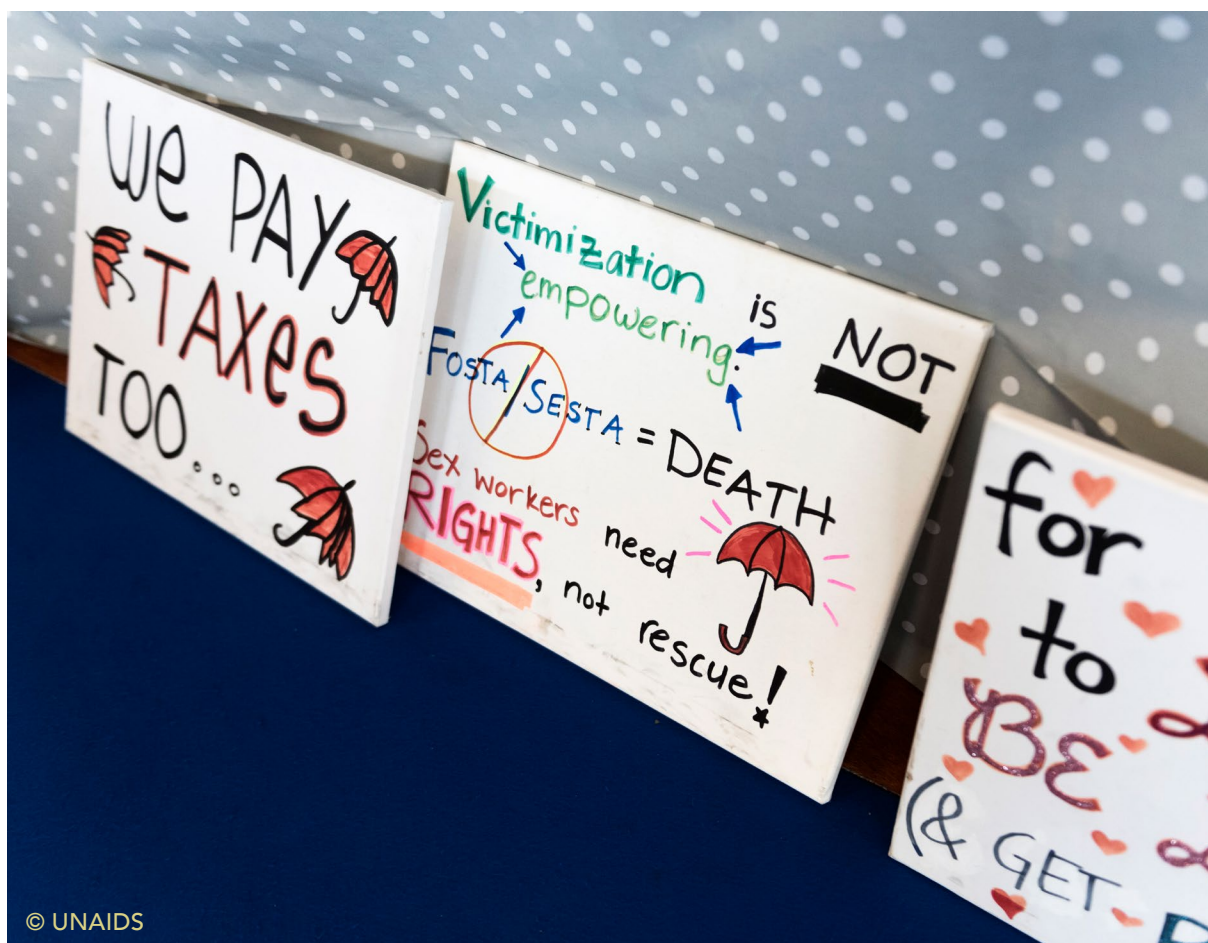 We PAY
TAXeS
TOO...
Victimization
is NOT
empowering.
FOSTA/SESTA = DEATH
Sex workers need
RIGHTS, not rescue!
for
to
BE
(& GET
© UNAIDS